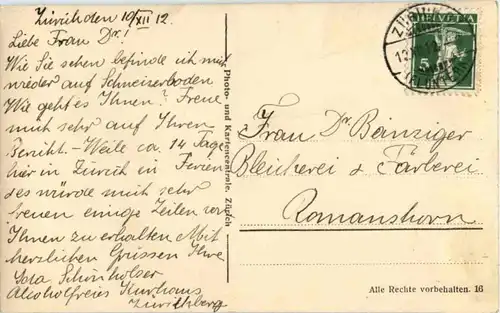 Zürich den 10/XII 12.
Liebe Frau Dr!
Wie Sie sehen befinde ich mich
wieder auf Schweizerboden
Wie geht es Ihnen? Freue
mich sehr auf Ihren
Bericht - Weile ca. 14 Tage
hier in Zürich in Ferien
es würde mich sehr
freuen einige Zeilen von
Ihnen zu erhalten Mit
herzlichen Grüssen Ihre
Schönholzer
Alcoholfreies Kurhaus
Zürichberg
Photo- und Kartencentrale, Zürich
HELVETIA
5
Frau Dr Bänziger
Bleicherei & Färberei
Romanshorn
Alle Rechte vorbehalten. 16